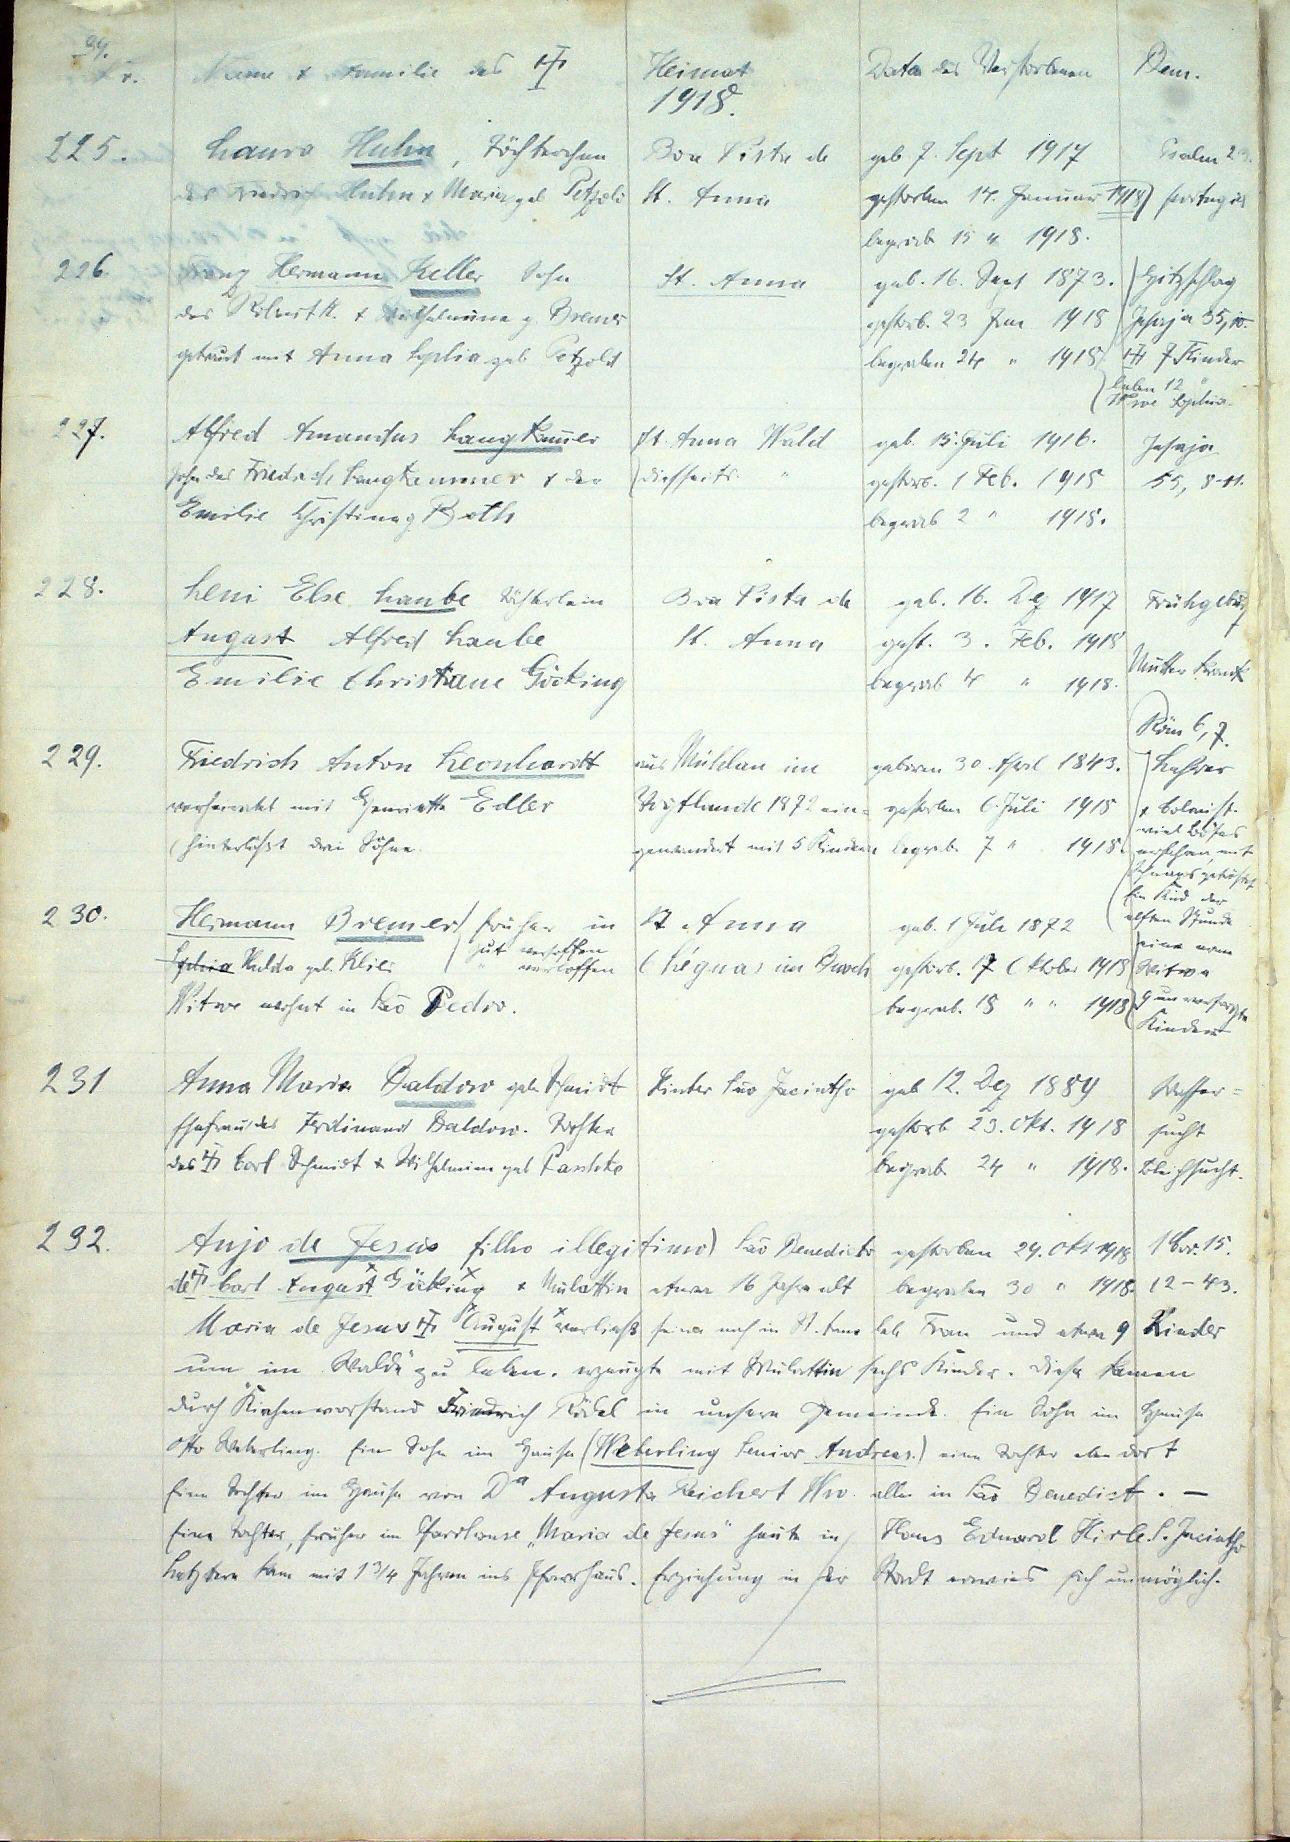 Nr. Name & Familie des Heimat Data des Verstorbenen Bem.
1918.
225. Laura Huhn, Töchterchen Boa Vista de geb 7. Sept 1917 Psalm 23.
des Friedrich Huhn & Maria geb Petzold St. Anna gestorben 14. Januar 1918
begrab 15 " 1918.
226. Hermann Keller Sohn St. Anna geb. 16. Sept 1873. Hitzschlag
des Robert K. & Wilhelmine g. Bremer gestorb. 23 Jan 1918 Jesaja 55,
getraut mit Anna Sophia geb Petzold begraben 24 " 1918 7 Kinder
leben 12 "
Wwe Sophia.
227. Alfred Amandus Langkammer St. Anna Wald geb. 15. Juli 1916. Jesaja
Sohn des Friedrich Langkammer & der diesseits " gestorb. 1 Feb. 1918 55, 8-11.
Emilie Christina g Both begrab 2 " 1918.
228. Leni Else Laube Töchterlein Boa Vista de geb. 16. Dez 1917 Frühgeburt
August Alfred Laube St. Anna gest. 3. Feb. 1918
Emilie Christiane Göcking begrab 4 " 1918. Mutter krank
Röm 6, 7.
229. Friedrich Anton Leonhardt aus Mühlau im geboren 30. April 1843. Lehrer
verheiratet mit Henriette Edler Voigtlande 1872 ein= gestorben 6. Juli 1918 & Colonist.
(hinterläßt drei Söhne. gewandert mit 5 Kindern begrab. 7 " 1918. viel Böses
erfahren, mit
Schnaps getröstet
Ein Kind der
elften Stunde
230. Hermann Bremer früher in St. Anna geb. 1 Juli 1872
gut versoffen eine arme
Sophia Hulda geb. Klier " verloffen (Léguas im Busch gestorb. 17 Oktober 1918 Witwe
Witwe wohnt in São Pedro. begrab. 18 " " 1918 9 unversorgte
Kinder
231 Anna Maria Baldow geb. Schmidt Hinter São Jacintho geb 12. Dez 1889 Wasser=
Ehefrau des Ferdinand Baldow. Tochter gestorb 23. Okt. 1918 sucht
des Carl Schmidt & Wilhelmine geb Paschke begrab 24 " 1918. Bleichsucht.
232. Anjo de Jesus filho illegitimo) São Benedicto gestorben 29. Okt 1918 1 Cor. 15.
des Carl August Göcking & Mulattin etwa 16 Jahre alt begraben 30 " 1918. 12-43.
Maria de Jesus August verließ seine noch in St. Anna leb. Frau und etwa 9 Kinder
um im "Walde" zu leben. erzeugte mit Mulattin sechs Kinder. Diese kamen
durch Kirchenvorstand Friedrich Rödel in unsere Gemeinde. Ein Sohn im Hause
Otto Weberling. Ein Sohn im Hause (Weberling Senior Andreas.) eine Tochter eben dort
Eine Tochter im Hause von Da Augusta Reichert Ww. alle in São Benedict. —
Eine Tochter, früher im Pfarrhause "Maria de Jesus" heute in Haus Eduard Hirle S. Jacintho
Letztere kam mit 1 3/4 Jahren ins Pfarrhaus. Erziehung in der Stadt erwies sich unmöglich.